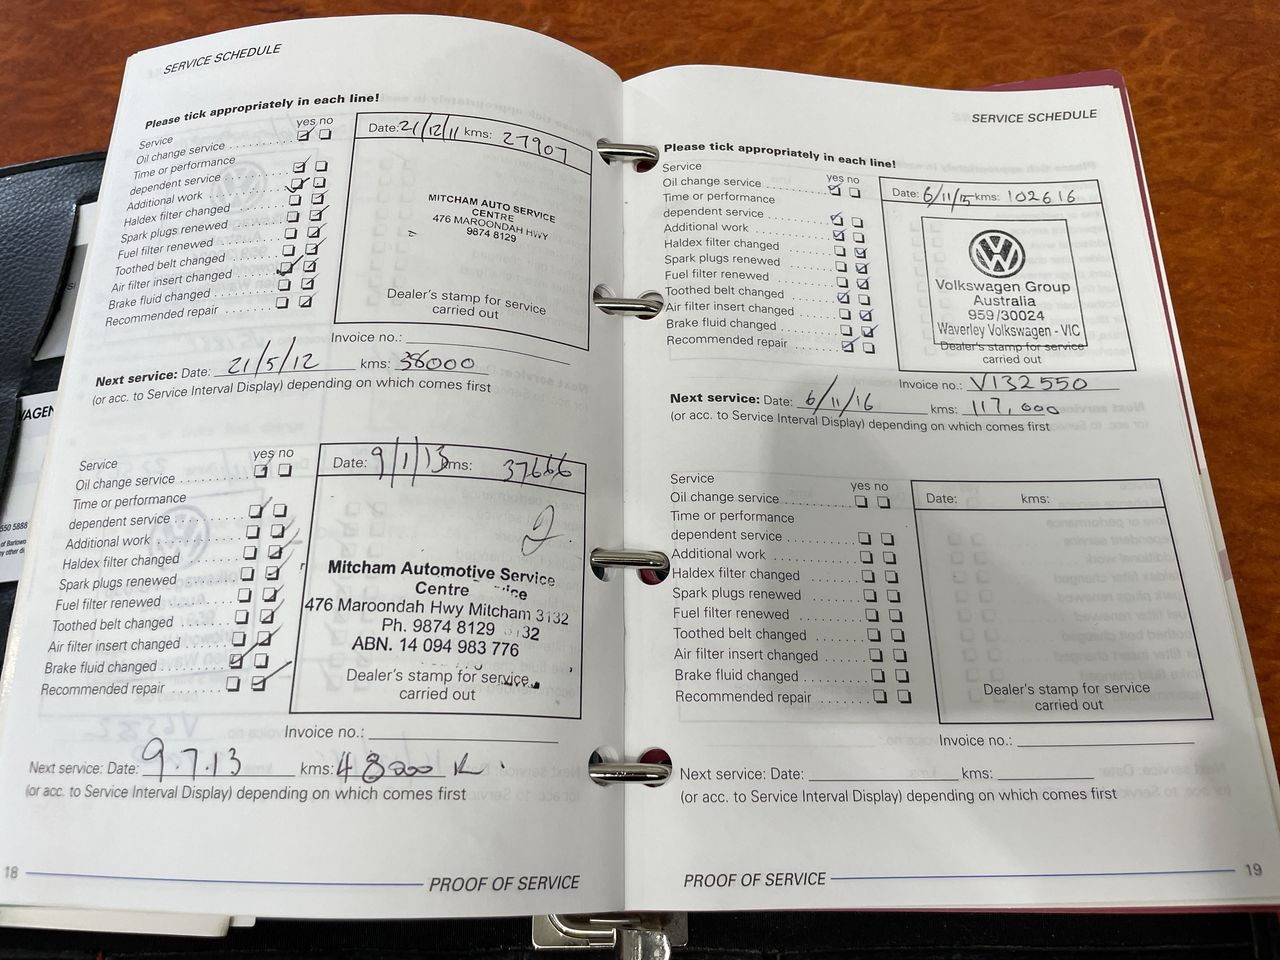 SERVICE SCHEDULE
Please tick appropriately in each line!
yes no
Service
Oil change service
Time or performance
dependent service
Additional work
Haldex filter changed
Spark plugs renewed
Fuel filter renewed
Toothed belt changed
Air filter insert changed
Brake fluid changed
Recommended repair
Date: 21/12/11 kms: 27907
MITCHAM AUTO SERVICE
CENTRE
476 MAROONDAH HWY
9874 8129
Dealer's stamp for service
carried out
Invoice no.:
Next service: Date: 21/5/12 kms: 38000
(or acc. to Service Interval Display) depending on which comes first
yes no
Service
Oil change service
Time or performance
dependent service
Additional work
Haldex filter changed
Spark plugs renewed
Fuel filter renewed
Toothed belt changed
Air filter insert changed
Brake fluid changed
Recommended repair
Date: 9/1/13 kms: 37666
2
Mitcham Automotive Service
Centre
476 Maroondah Hwy Mitcham 3132
Ph. 9874 8129
ABN. 14 094 983 776
Dealer's stamp for service
carried out
Invoice no.:
Next service: Date: 9.7.13 kms: 48000 K
(or acc. to Service Interval Display) depending on which comes first
18
PROOF OF SERVICE
SERVICE SCHEDULE
Please tick appropriately in each line!
yes no
Service
Oil change service
Time or performance
dependent service
Additional work
Haldex filter changed
Spark plugs renewed
Fuel filter renewed
Toothed belt changed
Air filter insert changed
Brake fluid changed
Recommended repair
Date: 6/11/15 kms: 102616
Volkswagen Group
Australia
959/30024
Waverley Volkswagen - VIC
Dealer's stamp for service
carried out
Invoice no.: V132550
Next service: Date: 6/11/16 kms: 117,000
(or acc. to Service Interval Display) depending on which comes first
yes no
Service
Oil change service
Time or performance
dependent service
Additional work
Haldex filter changed
Spark plugs renewed
Fuel filter renewed
Toothed belt changed
Air filter insert changed
Brake fluid changed
Recommended repair
Date: kms:
Dealer's stamp for service
carried out
Invoice no.:
Next service: Date: kms:
(or acc. to Service Interval Display) depending on which comes first
PROOF OF SERVICE
19